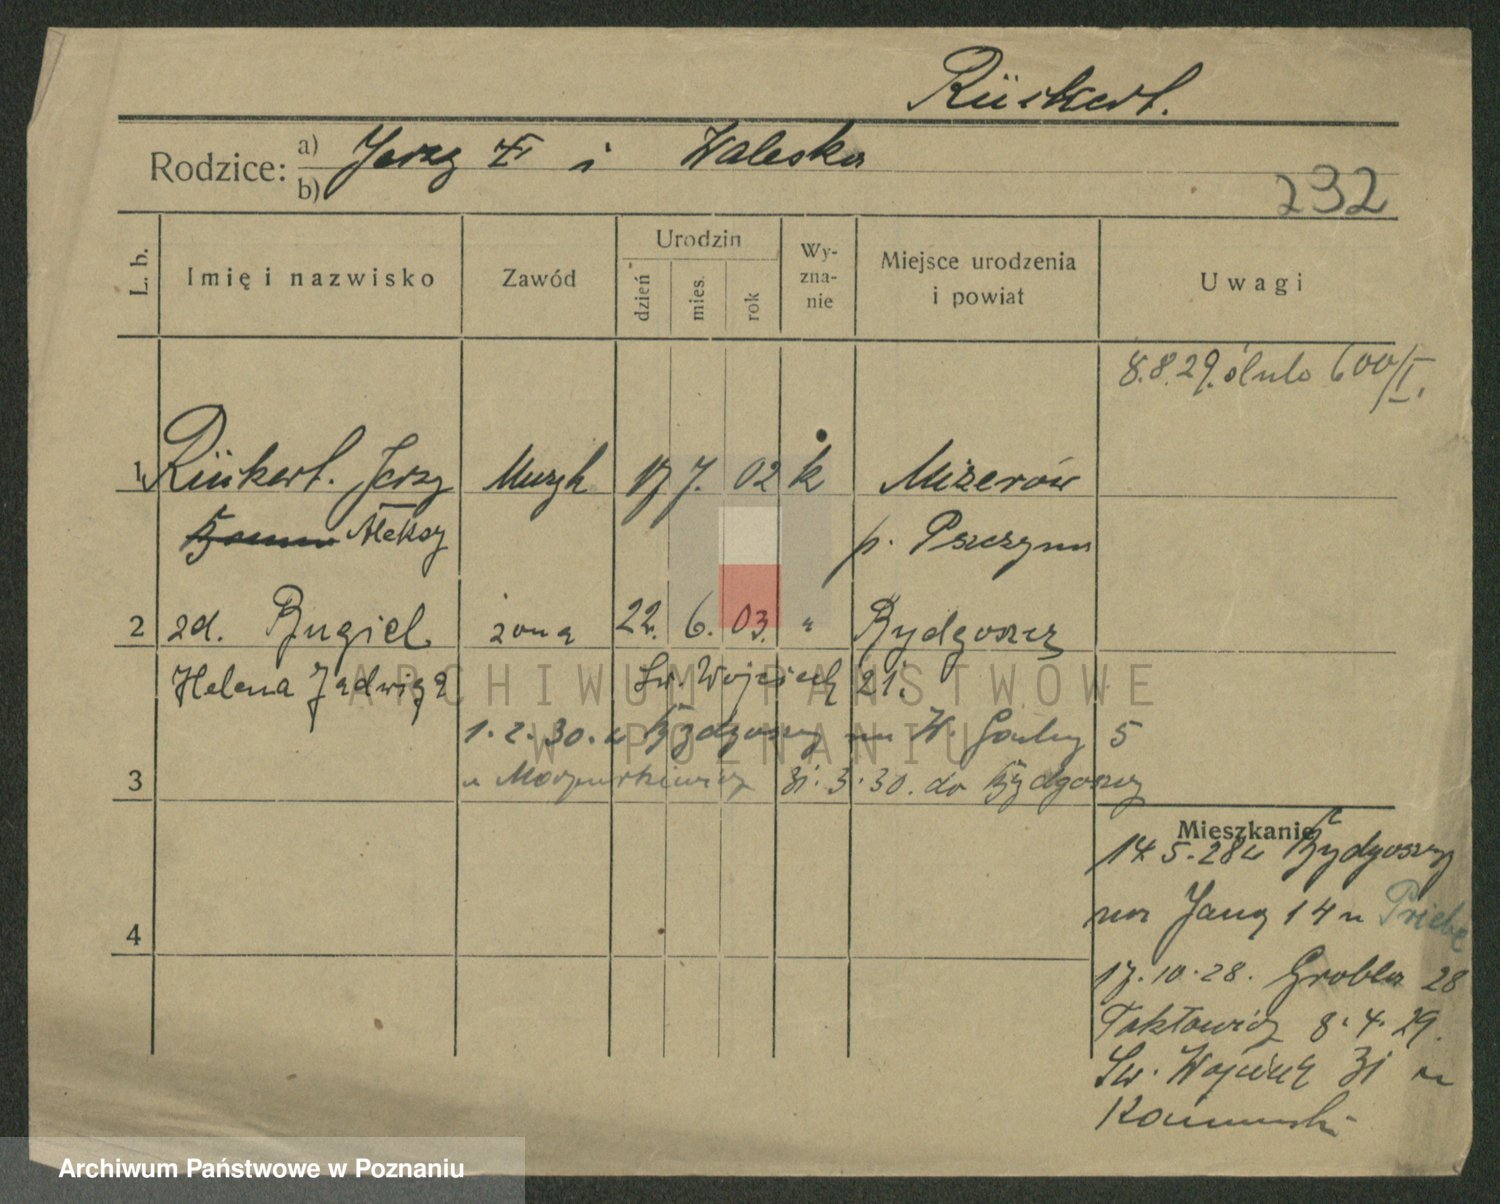 Rückert.
Rodzice: a) Jerzy i Waleska
b)
232
L. b.
Imię i nazwisko
Zawód
Urodzin
dzień
mies.
rok
Wy-
zna-
nie
Miejsce urodzenia
i powiat
Uwagi
8.8.29. ślub 600/I.
1 Rückert. Jerzy Muzyk 17 7. 02 k Mizerów
Aleksy p. Pszczyna
2 zd. Bugiel żona 22. 6. 03. " Bydgoszcz
Helena Jadwiga Św. Wojciech 21.
1.2.30. z Bydgoszczy 5
3 31.3.30. do Bydgoszczy
Mieszkanie
14.5.28 z Bydgoszczy
14 u Priebe
17.10.28. Grobla 28
8.4.29.
Św. Wojciech 31 u
4
ARCHIWUM PAŃSTWOWE
W POZNANIU
Archiwum Państwowe w Poznaniu